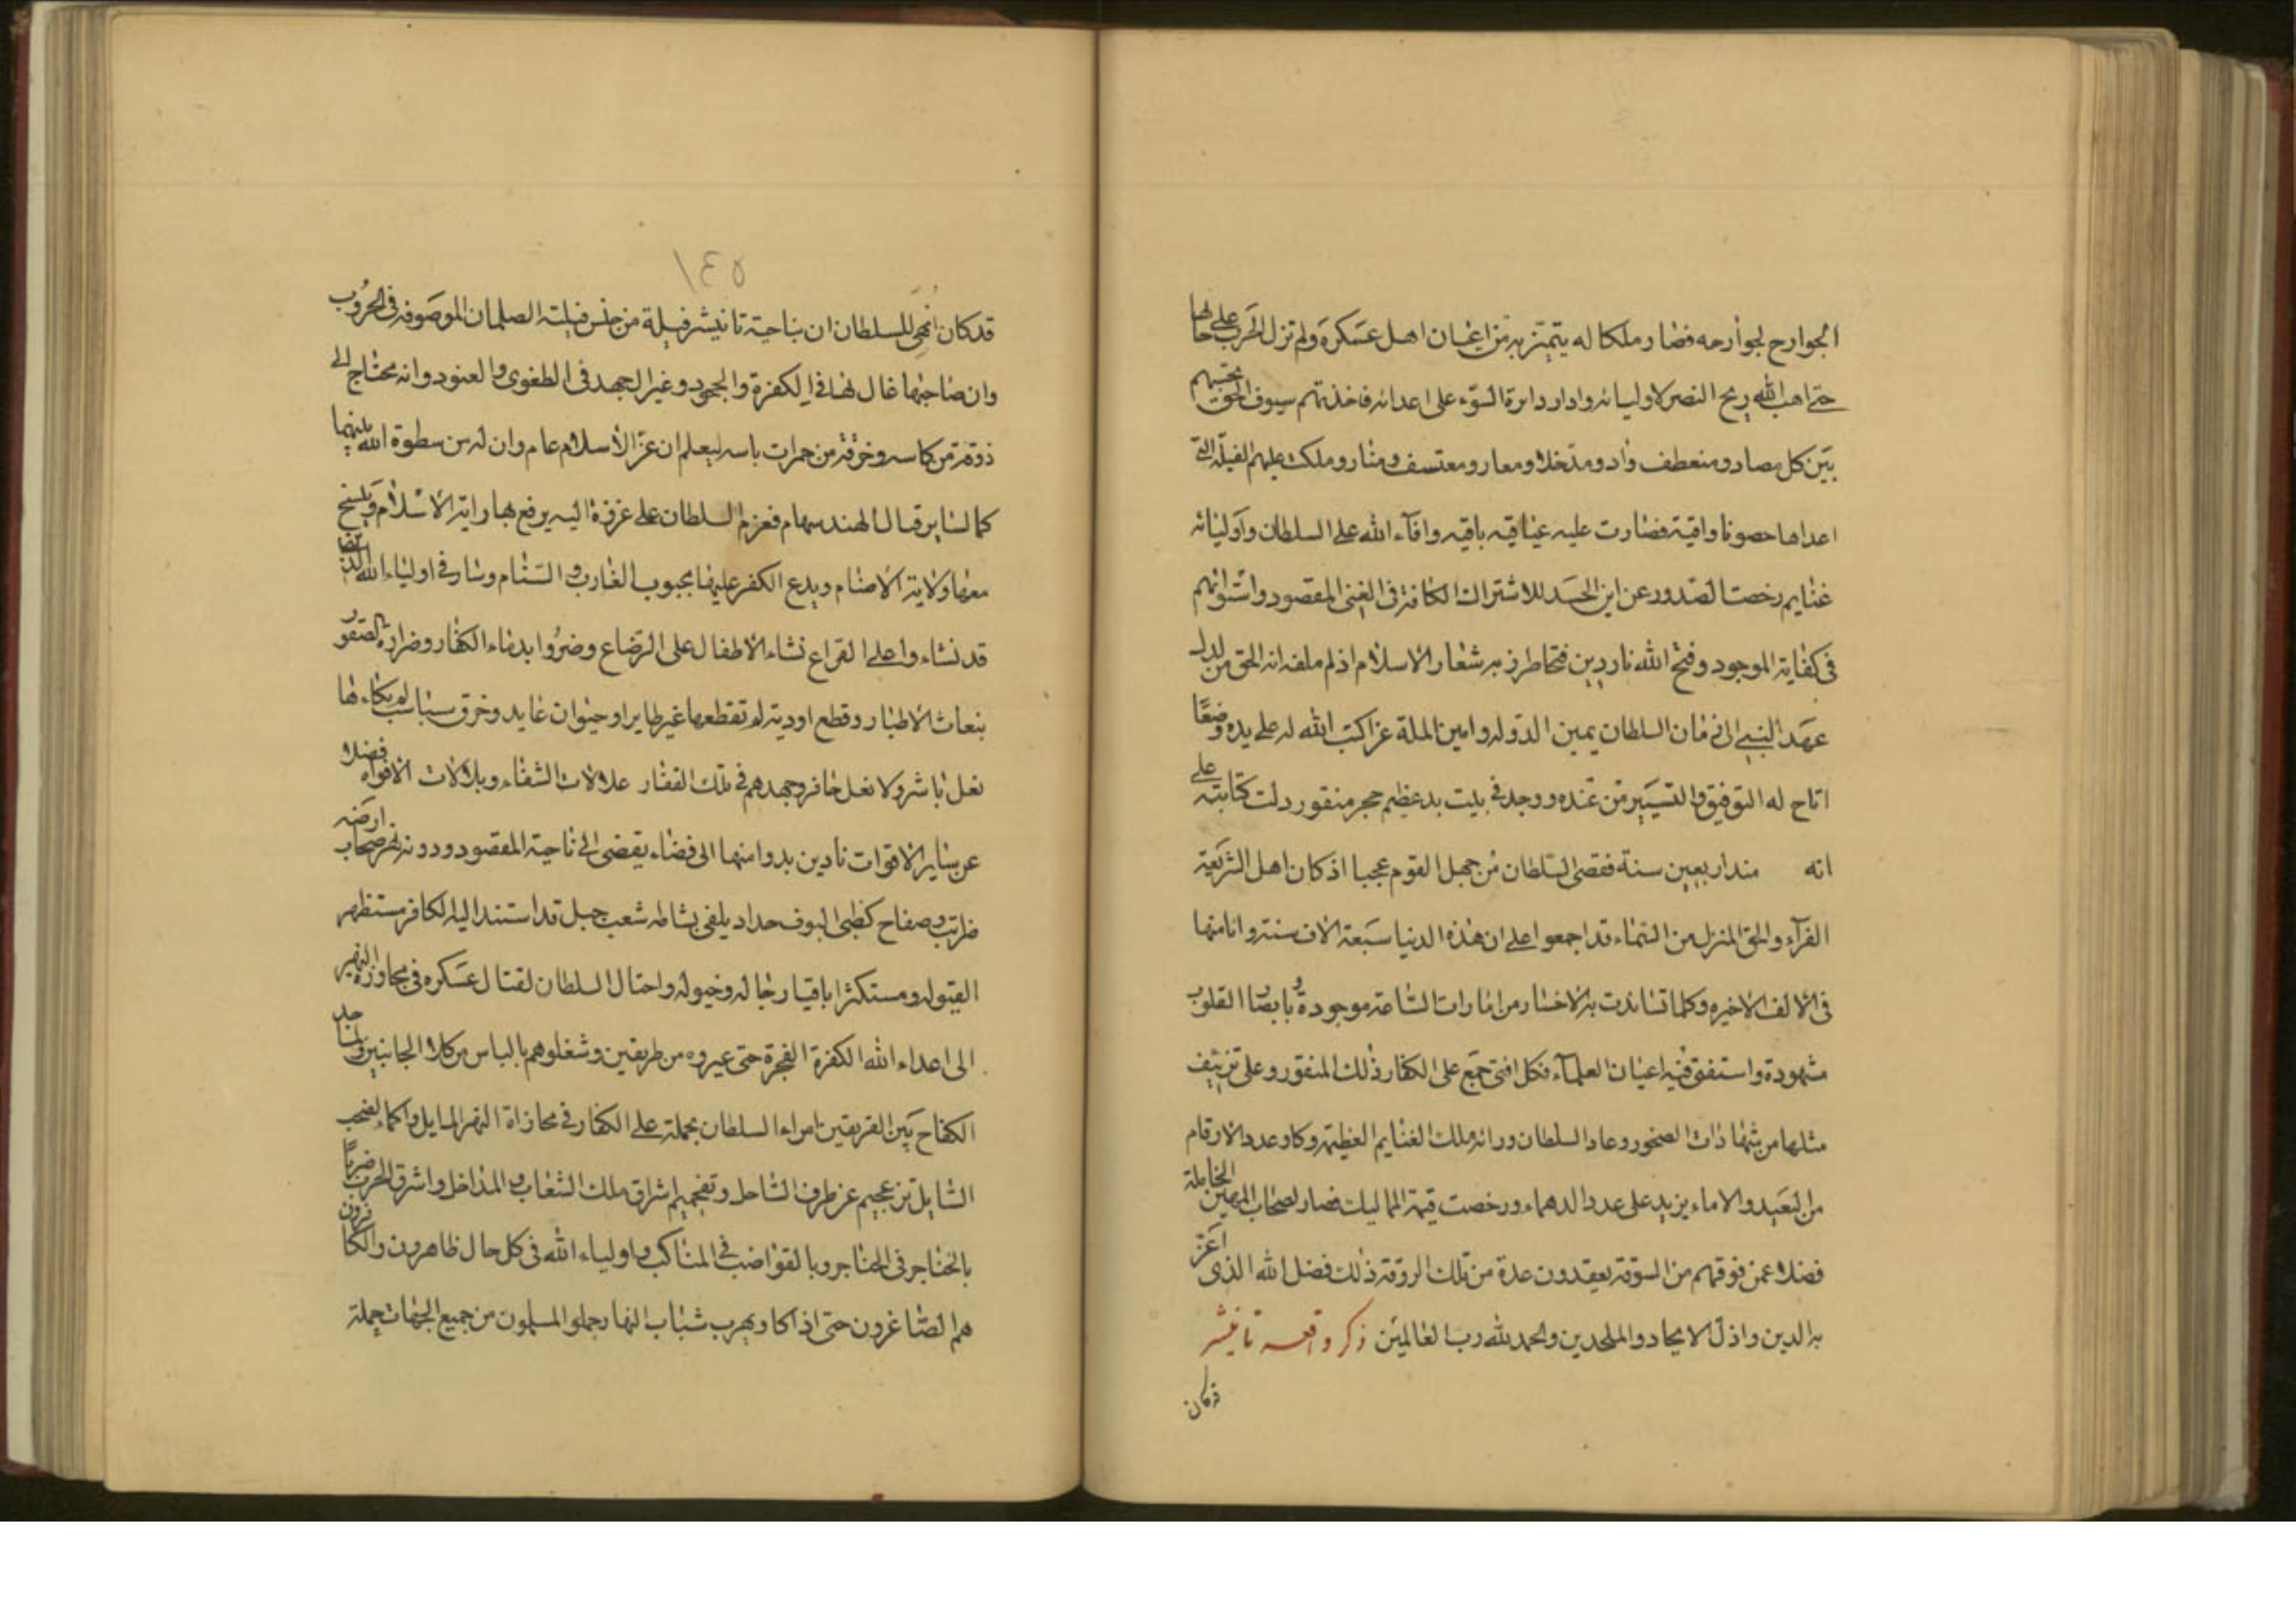 الجوارح لجوارحه فصار ملكا له يتميز به من اعيان اهل عسكره ولم تزل الحرب على حالها
حتى اهب الله ريح النصر لاوليائه وادار دائرة السوء على اعدائه فاخذتهم سيوف الحق
بين كل مصاد ومنعطف واد ومدخلا ومعار ومعتسف ومنار وملك عليهم الفيلة التى
اعداها حصونا واقية فصارت عليه عياقيه باقيه وافآء الله على السلطان واوليائه
غنايم رخصت الصدور عن اين الحسد للاشتراك الكافة فى الغنى المقصود واستوائهم
فى كفاية الموجود وفتح الله ناردين فتحا طرز به شعار الاسلام اذ لم ملفه انه الحق من لدن
عهد النبى الى زمان السلطان يمين الدوله وامين الملة عزا كتب الله له على يده وضعا
اتاح له التوفيق والتسيير من عنده ووجد فى بيت بد عظيم حجر منقور دلت كتابته على
انه منذ اربعين سنة فقضى السلطان من جهل القوم عجبا اذ كان اهل الشريعة
القرآء والحق المنزل من السماء قد اجمعوا على ان هذه الدنيا سبعة الاف سنته وانا منها
فى الالف الاخيره وكلما تساندت به الاخبار من امارات الساعة موجودة بابصار القلوب
مشهودة واستفتى فيه اعيان العلمآء فكل افتى جمع على الكفار ذلك المنقور وعلى تزييف
مثلها من شهاذات الصخور وعاد السلطان ورائه ملك الغنايم العظيمة وكاد عدد الارقام
من العبيد والاماء يزيد على عدد الدهماء ورخصت قيمة المماليك فصار اصحاب المهين الخاملة
فضلا عمن فوقهم من السوقة يعقدون عدة من تلك الروقة ذلك فضل الله الذى اعز
به الدين واذل الايحاد والملحدين والحمد لله رب العالمين ذكر وقعه تانيشر
قد كان
١٤٥
قد كان انهى للسلطان ان بناحية تانيشر فيلة من جنس فيلة الصلمان الموصوفه فى الحروب
وان صاحبها غال لها فى الكفرة والجحود وغير الجهد فى الطغوى والعنود وانه محتاج الى
ذوقة من كاسه وخرقة من جمرات باسه ليعلم ان عز الاسلام عام وان له من سطوة الله
كما لساير قبال الهند سهام فعزم السلطان على غزوة اليه يرفع بها راية الاسلام وينسخ
معها ولاية الاصنام ويدع الكفر عليها مجبوب الغارب والسنام وسار فى اولياء الله الذين
قد نشاء وا على القراع نشاء الاطفال على الرضاع وضروا بدماء الكفار وضراوة الصقور
بنعاث الاطيار وقطع اودية لم تقطعها غير طاير او حيوان غايد وخرق سباسب لم يكاءها
نعل باشر ولا نعل حافر وجهدهم فى تلك القفار علالات الشفاء وبلالات الافواه فضلا
عن ساير الاقوات نادين بدوا منها الى فضاء يفضى الى ناحية المقصود ودونه نهر صخاب ارضه
ظراب وصفاح كظبى البوف حداد يلفى بشاطه شعب جبل قد استند اليه الكافر مستظهر
الفيوله ومستكثرا باقيا رجاله وخيوله واحتال السلطان لقتال عسكره فى مجاوزة النهر
الى اعداء الله الكفرة الفجرة حتى عبروه من طريقين وشغلوهم بالباس من كلا الجانبين ولما جد
الكفاح بين الفريقين امراء السلطان بحملة على الكفار فى محاذاة النهر المايل واكماء الصخب
السايل تزعجهم عن طرف الساحل وتفحمهم اشراق ملك الشعاب والمداخل واشرق الحرب ضربا
بالخناجر فى الحناجر وبالقواضب فى المناكب واولياء الله فى كل حال ظاهرون والكافرون
هم الصاغرون حتى اذا كاد يهرب شباب النهار حملو المسلمون من جميع الجهات حملة